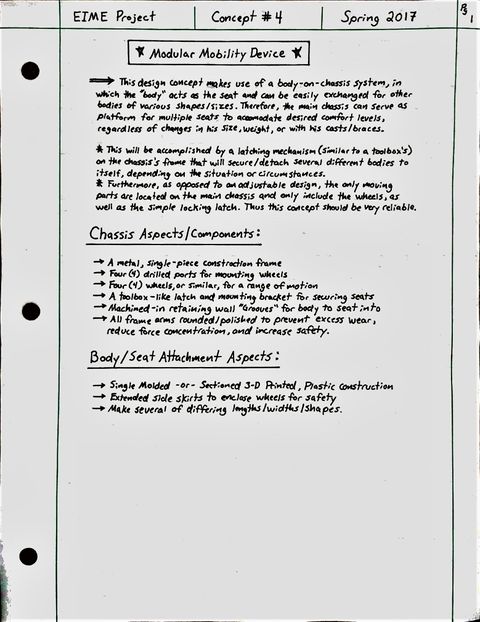 EIME Project | Concept #4 | Spring 2017
Pg 1
★ Modular Mobility Device ★
⟹ This design concept makes use of a body-on-chassis system, in
which the "body" acts as the seat and can be easily exchanged for other
bodies of various shapes/sizes. Therefore, the main chassis can serve as
platform for multiple seats to accomodate desired comfort levels,
regardless of changes in his size, weight, or with his casts/braces.
* This will be accomplished by a latching mechanism (similar to a toolbox's)
on the chassis's frame that will secure/detach several different bodies to
itself, depending on the situation or circumstances.
* Furthermore, as opposed to an adjustable design, the only moving
parts are located on the main chassis and only include the wheels, as
well as the simple locking latch. Thus this concept should be very reliable.
Chassis Aspects/Components:
→ A metal, single-piece construction frame
→ Four (4) drilled ports for mounting wheels
→ Four (4) wheels, or similar, for a range of motion
→ A toolbox-like latch and mounting bracket for securing seats
→ Machined-in retaining wall "Grooves" for body to seat into
→ All frame arms rounded/polished to prevent excess wear,
reduce force concentration, and increase safety.
Body/Seat Attachment Aspects:
→ Single Molded -or- Sectioned 3-D Printed, Plastic construction
→ Extended side skirts to enclose wheels for safety
→ Make several of differing lengths/widths/shapes.